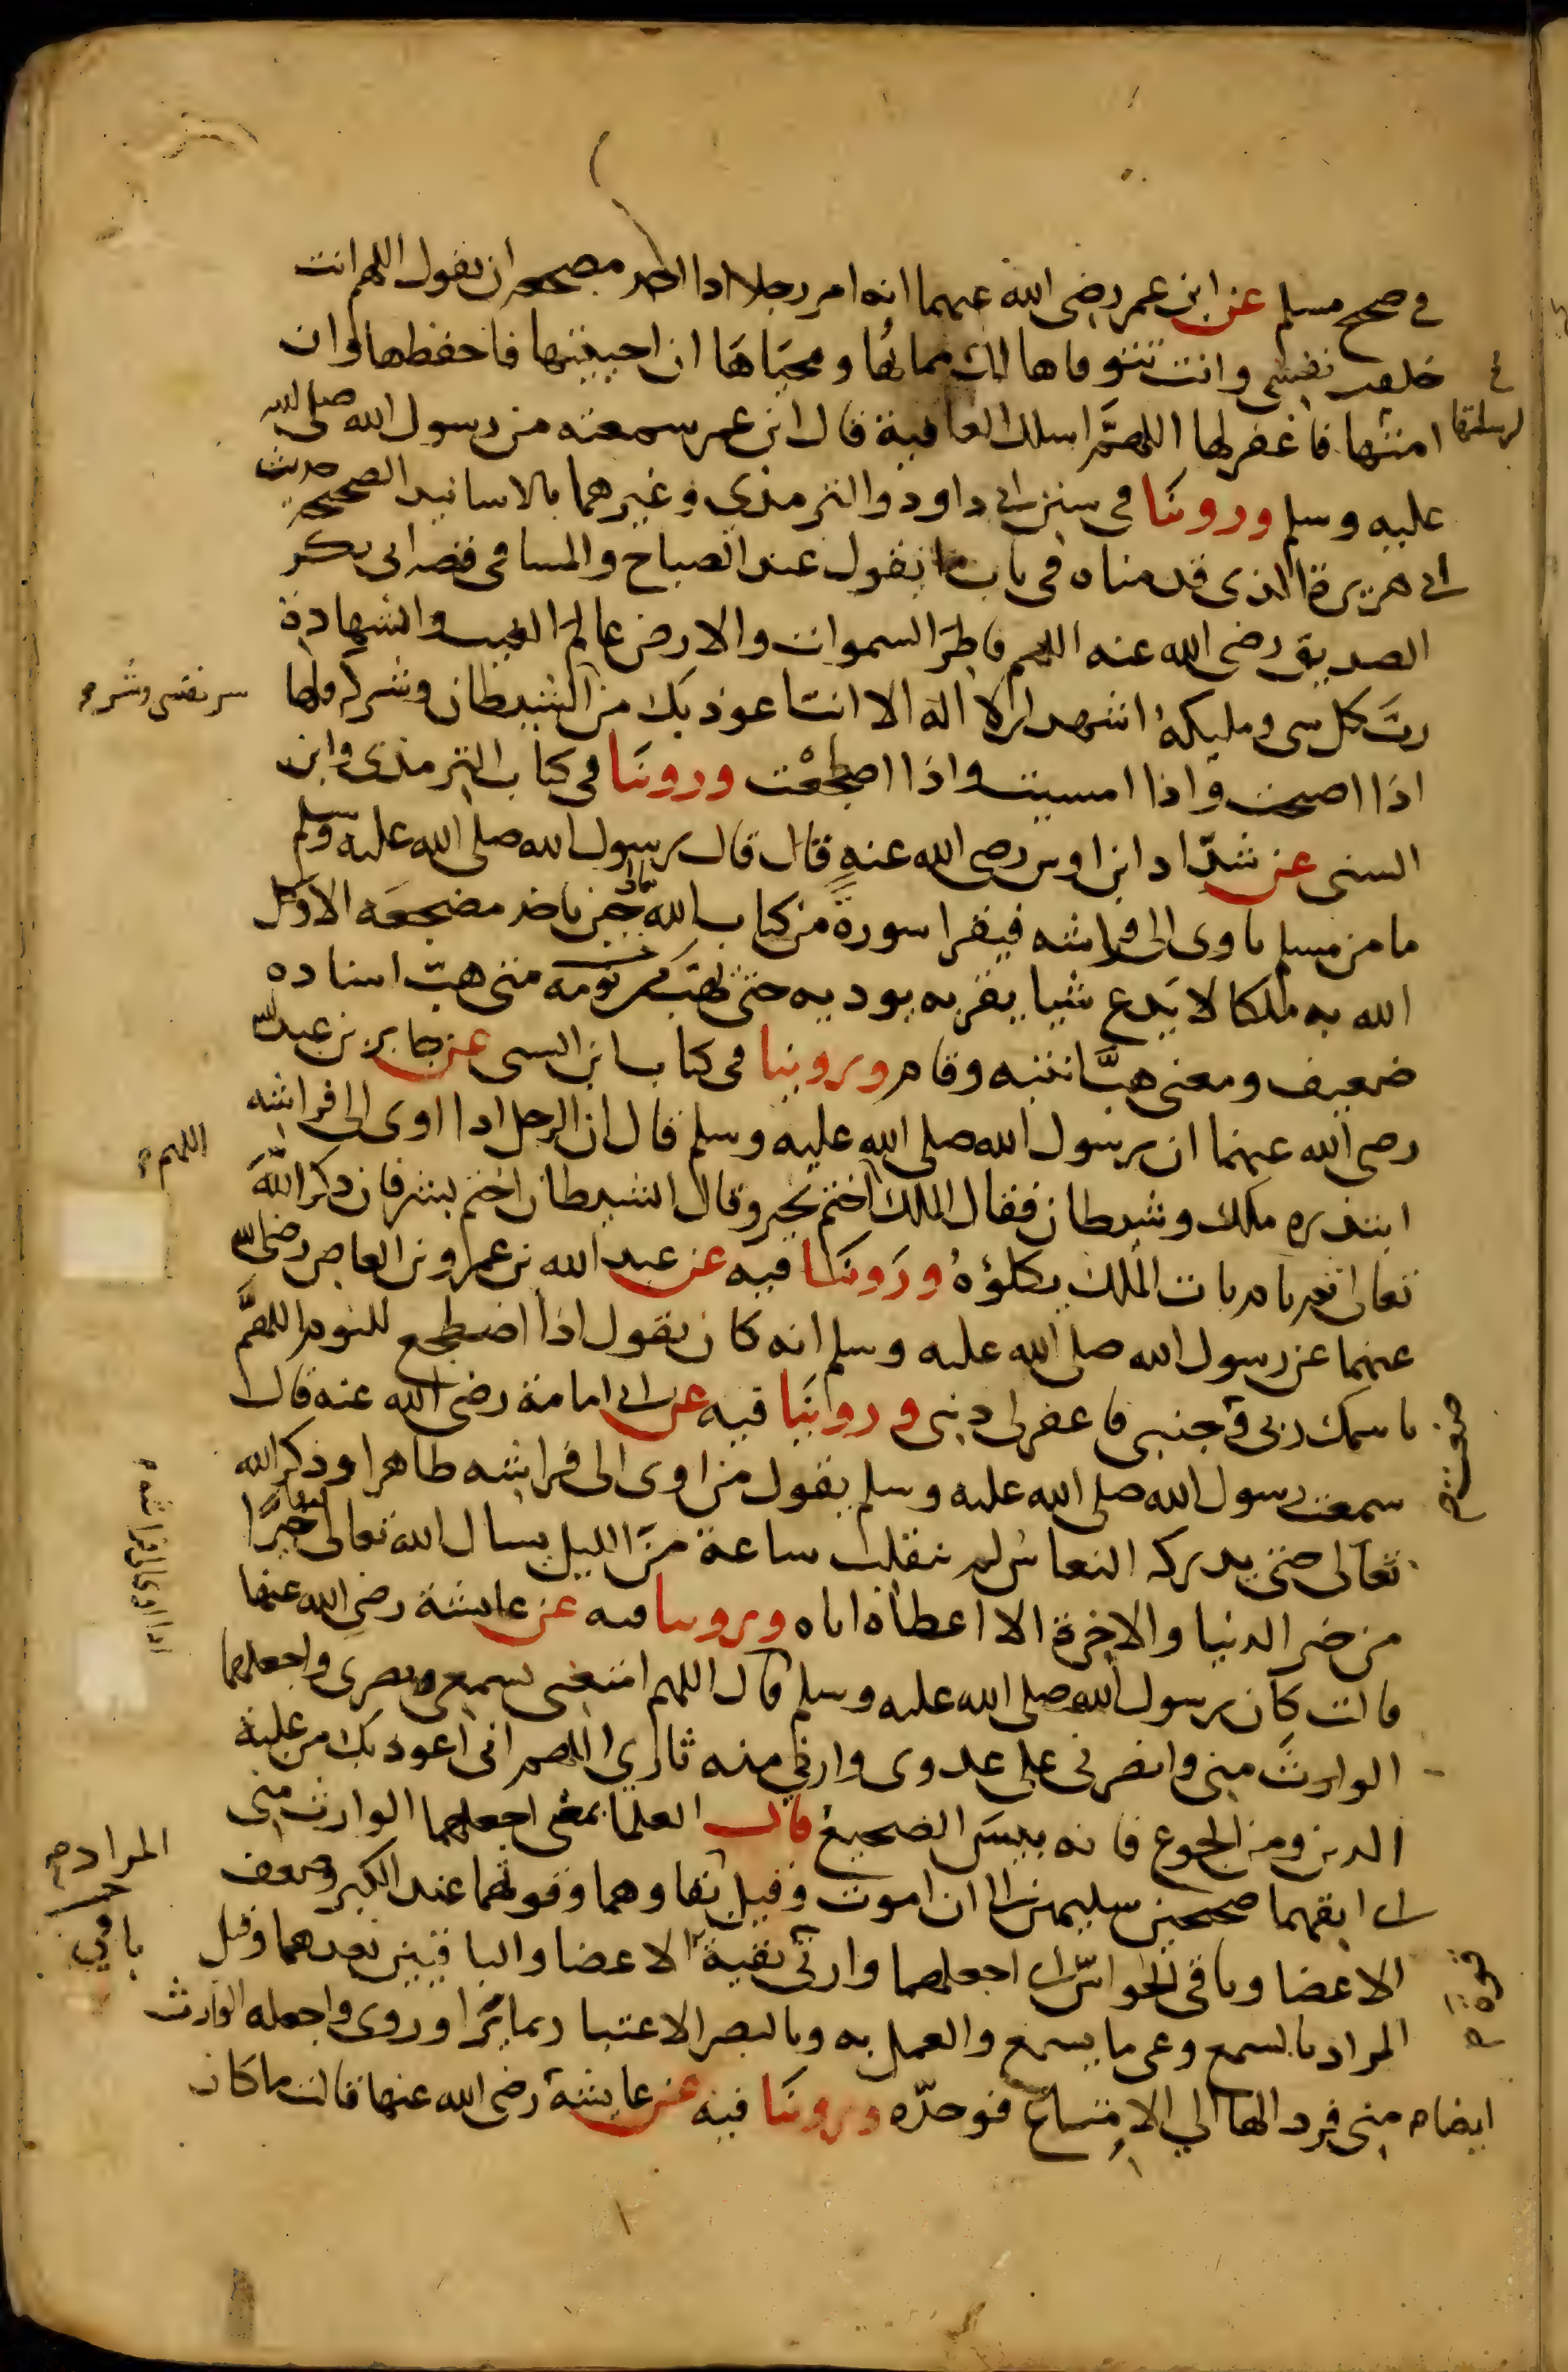 في صحيح مسلم عن ابن عمر رضي الله عنهما انه امر رجلا اذا اخذ مضجعه ان يقول اللهم انت
خلقت نفسي وانت تتوفاها لك مماتها ومحياها ان احييتها فاحفظها وان
امتها فاغفر لها اللهم اسلك العافية قال ابن عمر سمعته من رسول الله صلى الله
عليه وسلم وروينا في سنن ابي داود والترمذي وغيرهما بالاسانيد الصحيحة حديث
ابي هريرة الذي قدمناه في باب ما يقول عند الصباح والمسا في قصه ابي بكر
الصديق رضي الله عنه اللهم فاطر السموات والارض عالم الغيب والشهادة
رب كل شي ومليكه اشهد ان لا اله الا انت اعوذ بك من الشيطان وشركه قلها
شر نفسي وشر
اذا اصبحت واذا امسيت واذا اضطجعت وروينا في كتاب الترمذي وابن
السني عن شداد ابن اوس رضي الله عنه قال قال رسول الله صلى الله عليه وسلم
ما من مسلم ياوي الى فراشه فيقرا سورة من كتاب الله تعالى حين ياخذ مضجعه الا وكل
الله به ملكا لا يدع شيا يقربه يوديه حتى يهب من نومه متى هب اسناده
ضعيف ومعنى هب انتبه وقام وروينا في كتاب ابن السني عن جابر بن عبد الله
رضي الله عنهما ان رسول الله صلى الله عليه وسلم قال ان الرجل اذا اوى الى فراشه
ابتدره ملك وشيطان فقال الملك اختم بخير وقال الشيطان اختم بشر فان ذكر الله
اللهم
تعالى ثم نام بات الملك يكلؤه وروينا فيه عن عبد الله بن عمرو بن العاص رضي الله
عنهما عن رسول الله صلى الله عليه وسلم انه كان يقول اذا اضطجع للنوم اللهم
باسمك ربي وجنبي فاغفر لي ذنبي وروينا فيه عن ابي امامة رضي الله عنه قال
سمعت رسول الله صلى الله عليه وسلم يقول من اوى الى فراشه طاهرا وذكر الله
تعالى حتى يدركه النعاس لم يتقلب ساعة من الليل يسال الله تعالى فيها خيرا
اذا اوى الى فراشه
من خير الدنيا والاخرة الا اعطاه اياه وروينا فيه عن عايشة رضي الله عنها
قالت كان رسول الله صلى الله عليه وسلم قال اللهم امتعني بسمعي وبصري واجعلهما
الوارث مني وانصرني على عدوي وارني منه ثاري اللهم اني اعوذ بك من غلبة
الدين ومن الجوع فانه بيس الضجيع قال العلما معنى اجعلهما الوارث مني
اي ابقهما صحيحين سليمين الى ان اموت وقيل بقاوهما وقوتهما عند الكبر وضعف
المراد
الاعضا وباقي الحواس اي اجعلهما وارثي بقية الاعضا والباقيين بعدهما وقيل
باقي
قوة
المراد بالسمع وعي ما يسمع والعمل به وبالبصر الاعتبار بما يرا وروي واجعله الوارث
ايضا مني فرد الها الي الامتاع فوحده وروينا فيه عن عايشة رضي الله عنها قالت ما كان